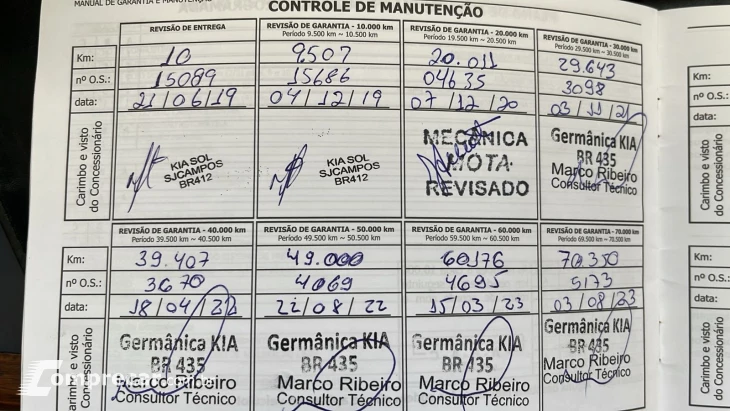 MANUAL DE GARANTIA E MANUTENÇÃO
CONTROLE DE MANUTENÇÃO
REVISÃO DE ENTREGA
REVISÃO DE GARANTIA - 10.000 km
Período 9.500 km ~ 10.500 km
REVISÃO DE GARANTIA - 20.000 km
Período 19.500 km ~ 20.500 km
REVISÃO DE GARANTIA - 30.000 km
Período 29.500 km ~ 30.500 km
Km: 10 9.507 20.011 29.643
nº O.S.: 15089 15686 04635 3098
data: 21/06/19 04/12/19 07/12/20 03/11/21
Carimbo e visto
do Concessionário
KIA SOL
SJCAMPOS
BR412
KIA SOL
SJCAMPOS
BR412
MECÂNICA
MOTA
REVISADO
Germânica KIA
BR 435
Marco Ribeiro
Consultor Técnico
REVISÃO DE GARANTIA - 40.000 km
Período 39.500 km ~ 40.500 km
REVISÃO DE GARANTIA - 50.000 km
Período 49.500 km ~ 50.500 km
REVISÃO DE GARANTIA - 60.000 km
Período 59.500 km ~ 60.500 km
REVISÃO DE GARANTIA - 70.000 km
Período 69.500 km ~ 70.500 km
Km: 39.407 49.000 60176 70.350
nº O.S.: 3670 4069 4695 5173
data: 18/04/22 22/08/22 15/03/23 03/08/23
Carimbo e visto
do Concessionário
Germânica KIA
BR 435
Marco Ribeiro
Consultor Técnico
Germânica KIA
BR 435
Marco Ribeiro
Consultor Técnico
Germânica KIA
BR 435
Marco Ribeiro
Consultor Técnico
Germânica KIA
BR 435
Marco Ribeiro
Consultor Técnico
Km:
nº O.S.:
data:
Carimbo e visto
do Concessionário
Km:
nº O.S.:
data:
Carimbo e visto
do Concessionário